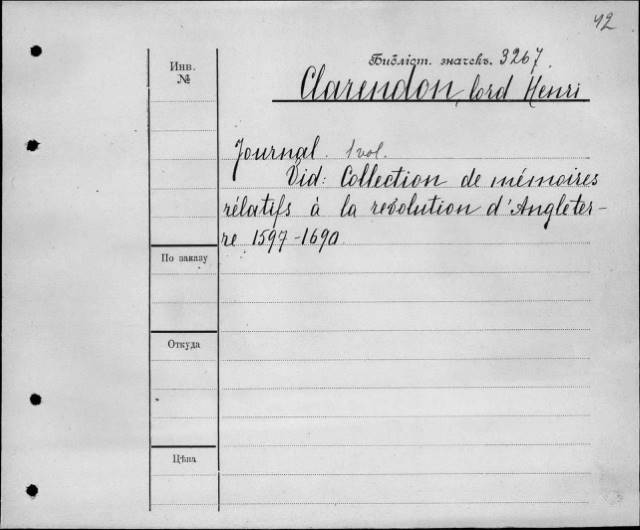 42
Библіот. значекъ. 3267.
Инв.
№
Clarendon, lord Henri
Journal. 1 vol.
Vid: Collection de mémoires
rélatifs à la revolution d'Angleter-
re 1597-1690.
По заказу
Откуда
Цѣна